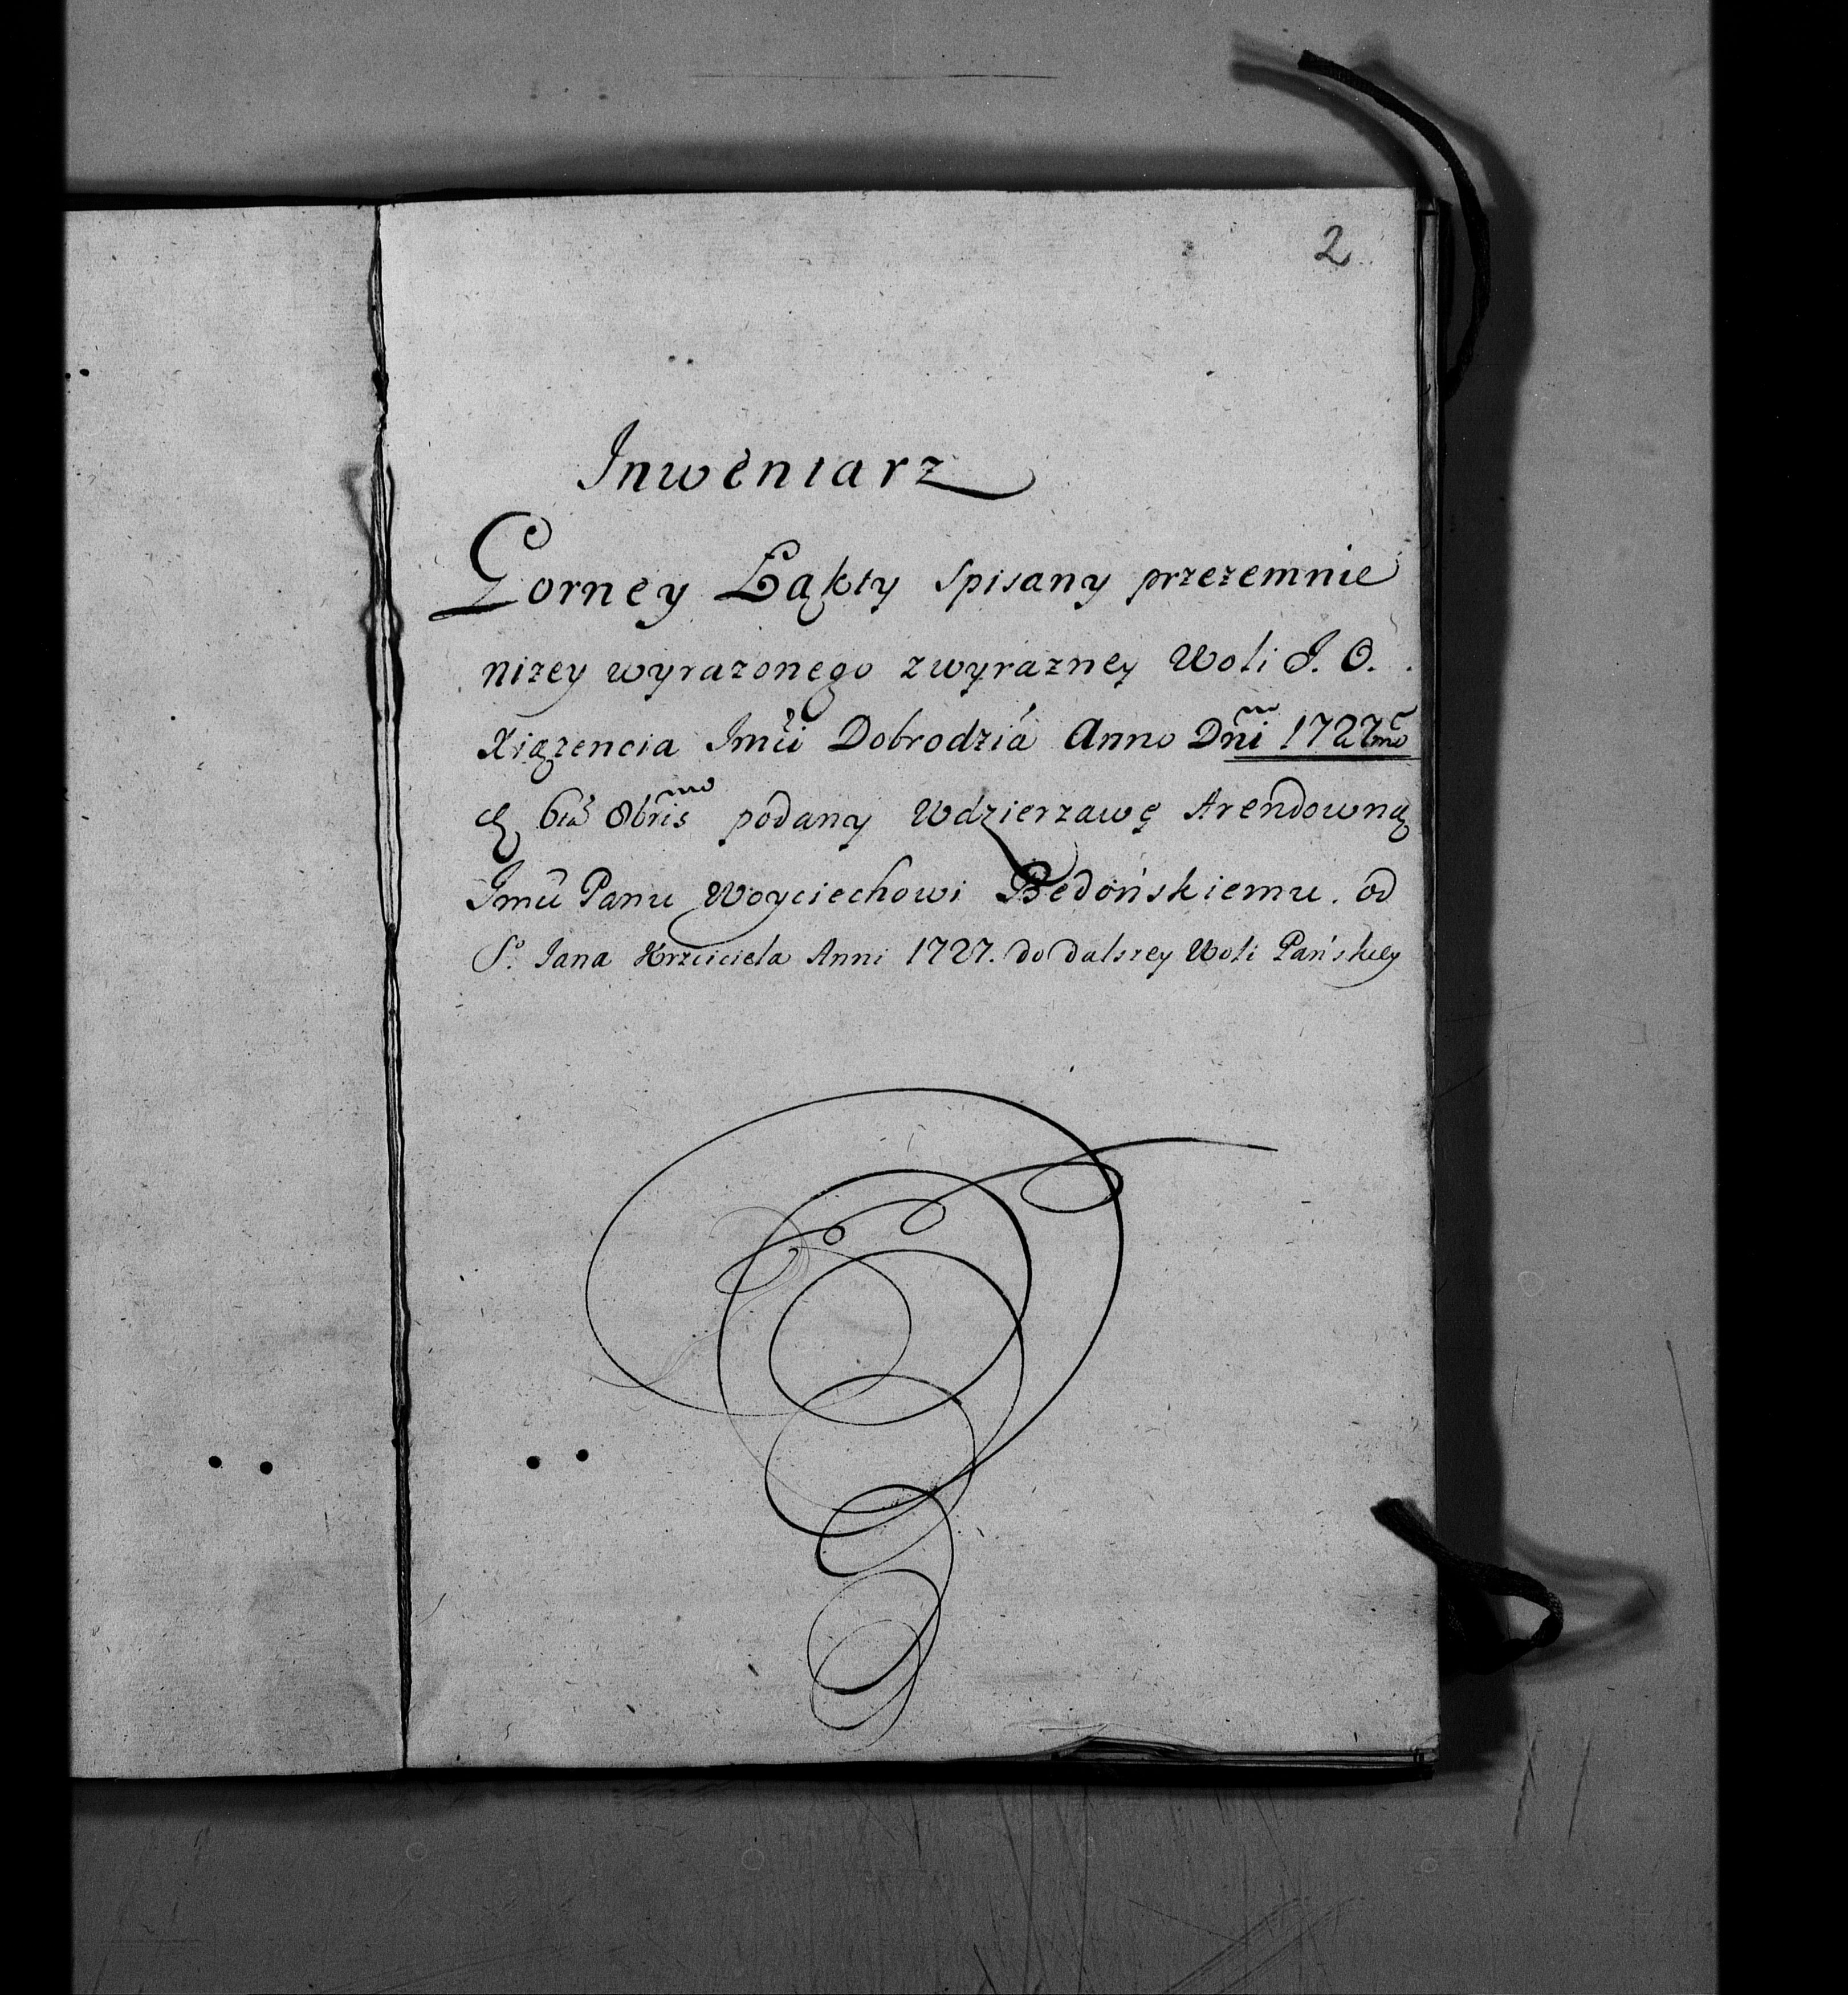 2
Inwentarz
Gorney Łąkty spisany przezemnie
nizey wyrazonego z wyrazney Woli J. O.
Xiązencia Jmći Dobrodzia Anno Dni 1727mo
podany Wdzierzawę Arendowną
Jmći Panu Woyciechowi Bedońskiemu. od
S. Jana Krzciciela Anni 1727. do dalszey Woli Pańskiey